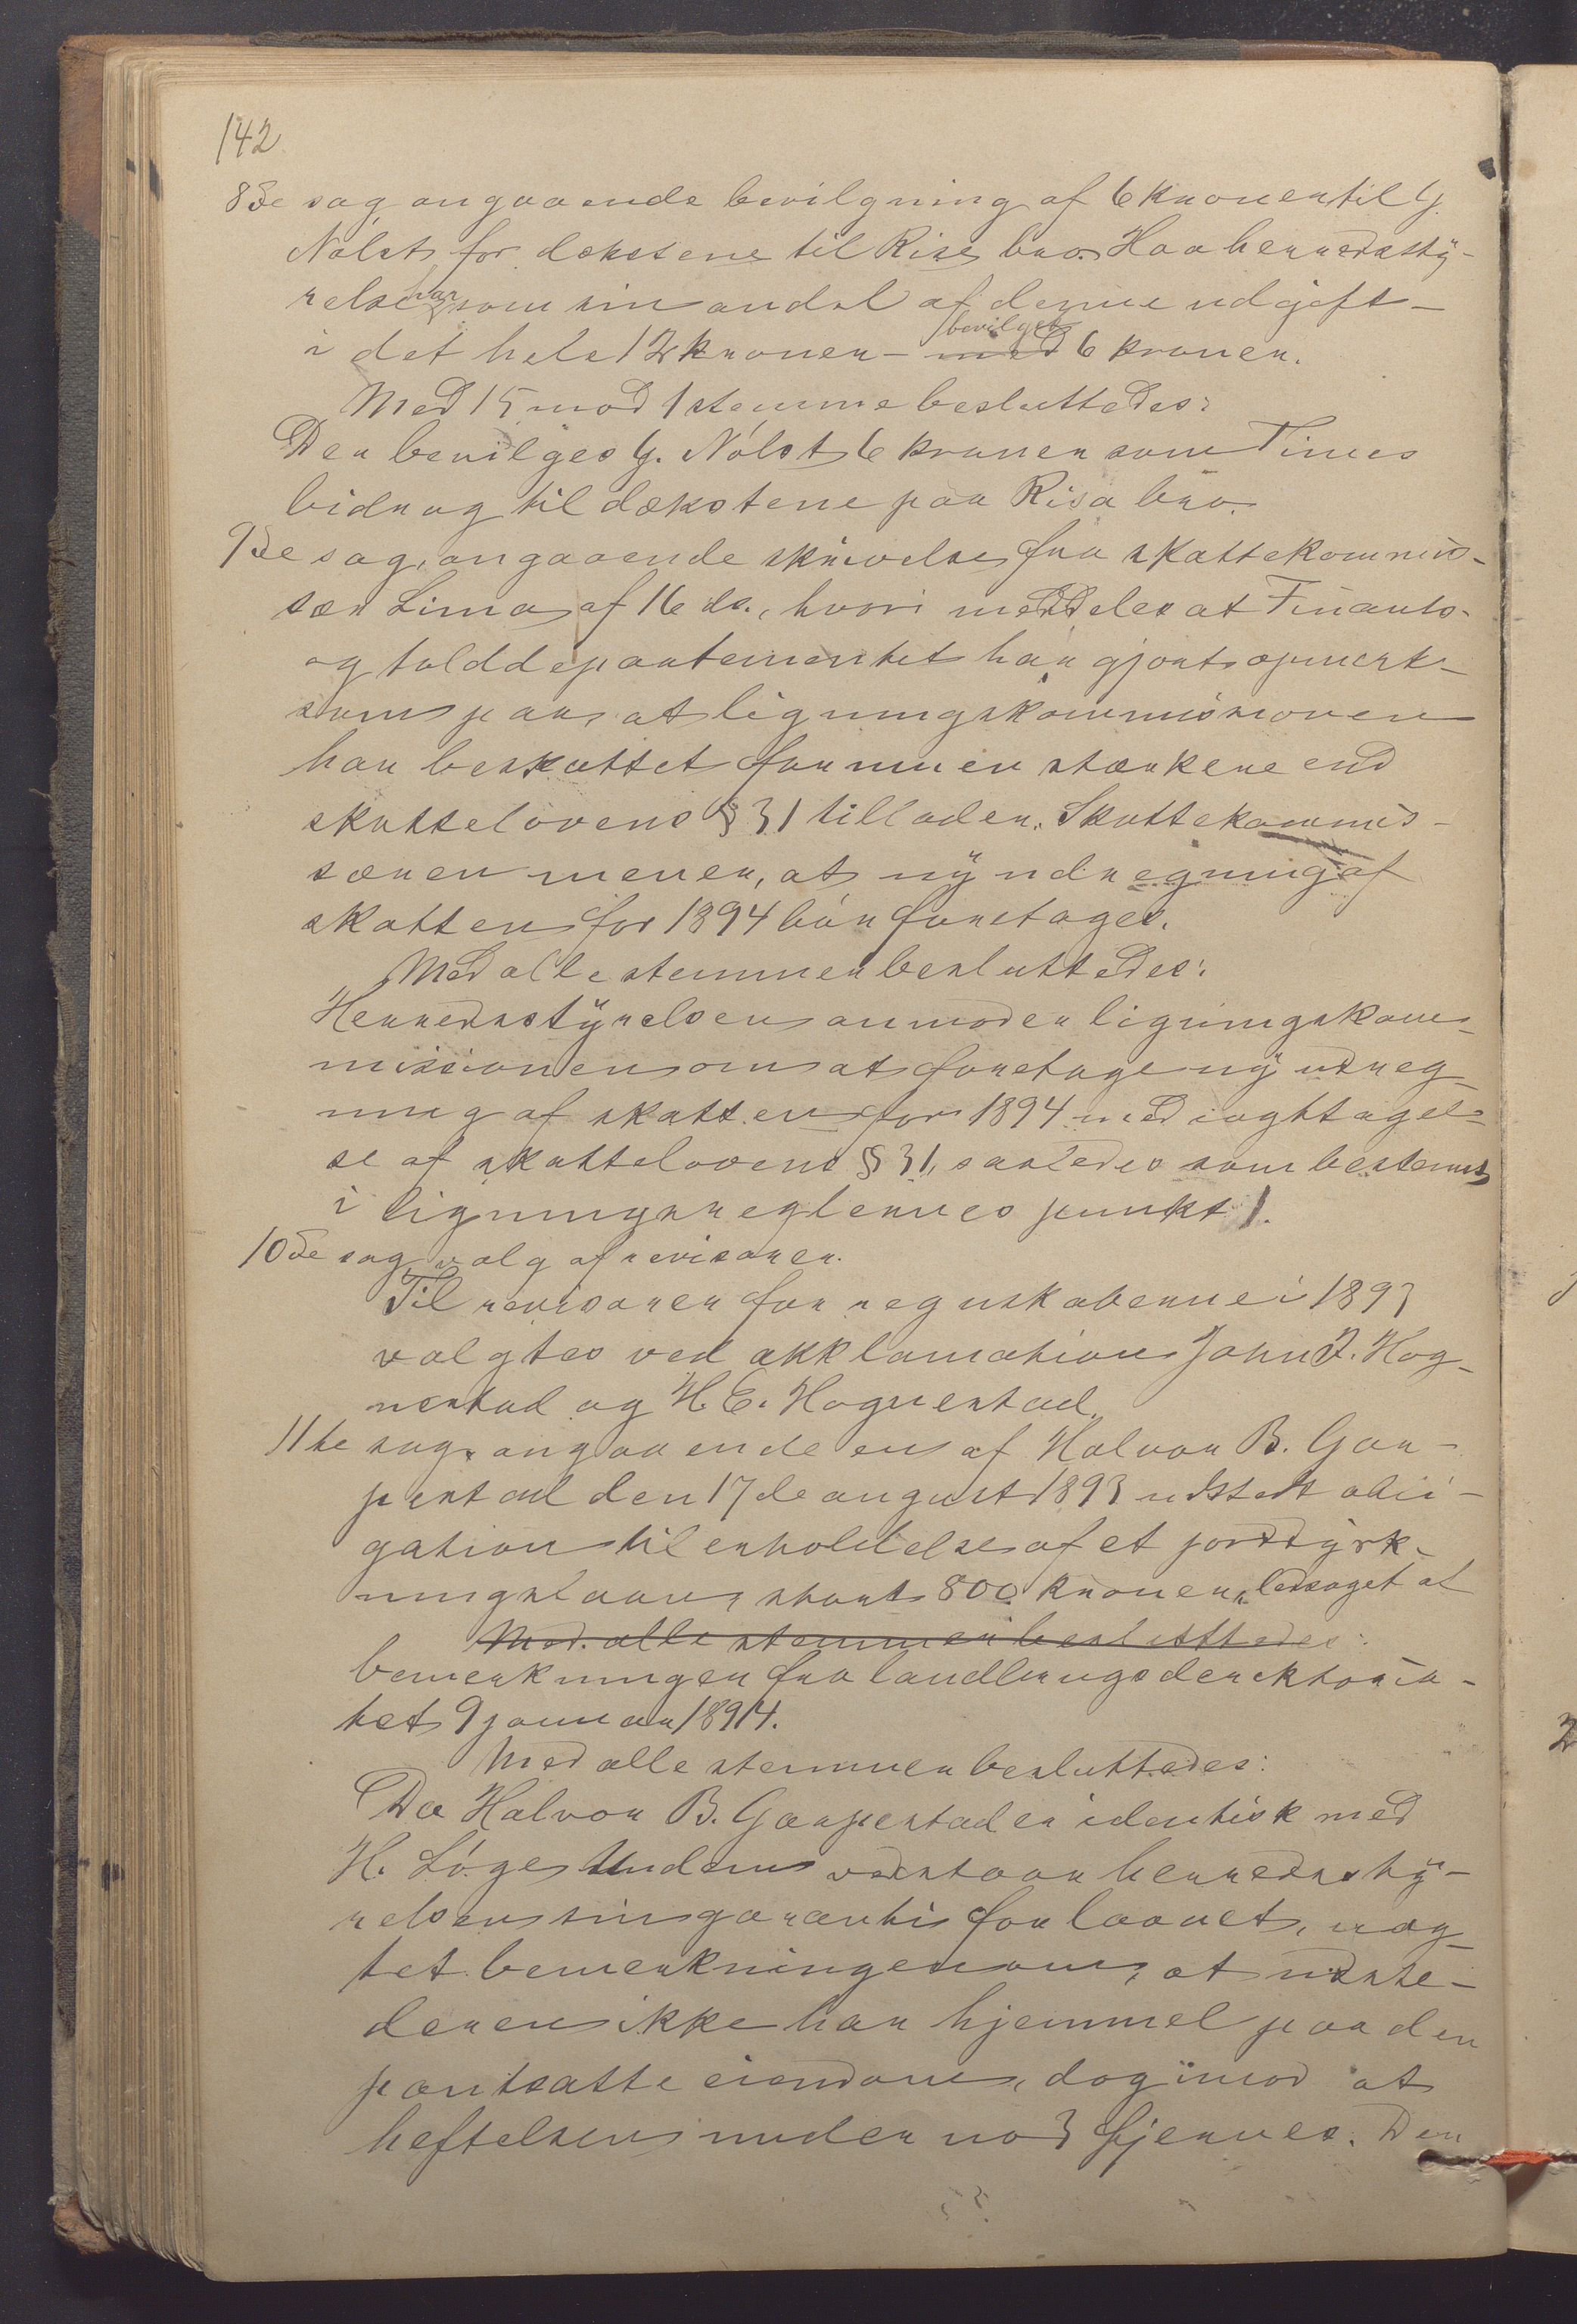 142
8de sag angaaende bevilgning af 6 kroner til G.
Nölst for dækstene til Rise bro. Haa herredssty-
relse har som sin andel af denne udgift –
i det hele 12 kroner – med bevilget 6 kroner.
Med 15 mod 1 stemme besluttedes:
Der bevilges G. Nölst 6 kroner som Times
bidrag til dækstene paa Risa bro.
9de sag, angaaende skrivelse fra skattekommis-
sær Lima af 16 ds., hvori meddeles at Finants-
og tolddepartementet har gjort opmerk-
som paa, at ligningskommissionen
har beskattet formuen stærkere end
skattelovens § 31 tillader. Skattekommis-
særen mener, at ny udregning af
skatten for 1894 bör foretages.
Med alle stemmer besluttedes:
Herredsstyrelsen anmoder ligningskom-
missionen om at foretage ny udreg-
ning af skatten for 1894 med iagttagel-
se af skattelovens § 31, saaledes som bestemt
i ligningsreglernes punkt 1.
10de sag valg af revisorer.
Til revisorer for regnskaberne i 1893
valgtes ved akklamation John J. Hog-
nestad og H. E. Hognestad.
11te sag angaaende en af Halvor B. Gar-
pestad den 17de august 1893 udstedt obli-
gation til erholdelse af et jorddyrk-
ningslaan, stort 800 kroner, ledsaget af
Med alle stemmer besluttedes:
bemerkninger fra landbrugsdirektora-
tet 9 januar 1894.
Med alle stemmer besluttedes:
Da Halvor B. Garpestad er identisk med
H. Löge Undem vedstaar herredssty-
relsen sin garanti for laanet, uag-
tet bemerkningen om, at udste-
deren ikke har hjemmel paa den
pantsatte eiendom, dog imod at
heftelsen under no 3 fjernes. Den